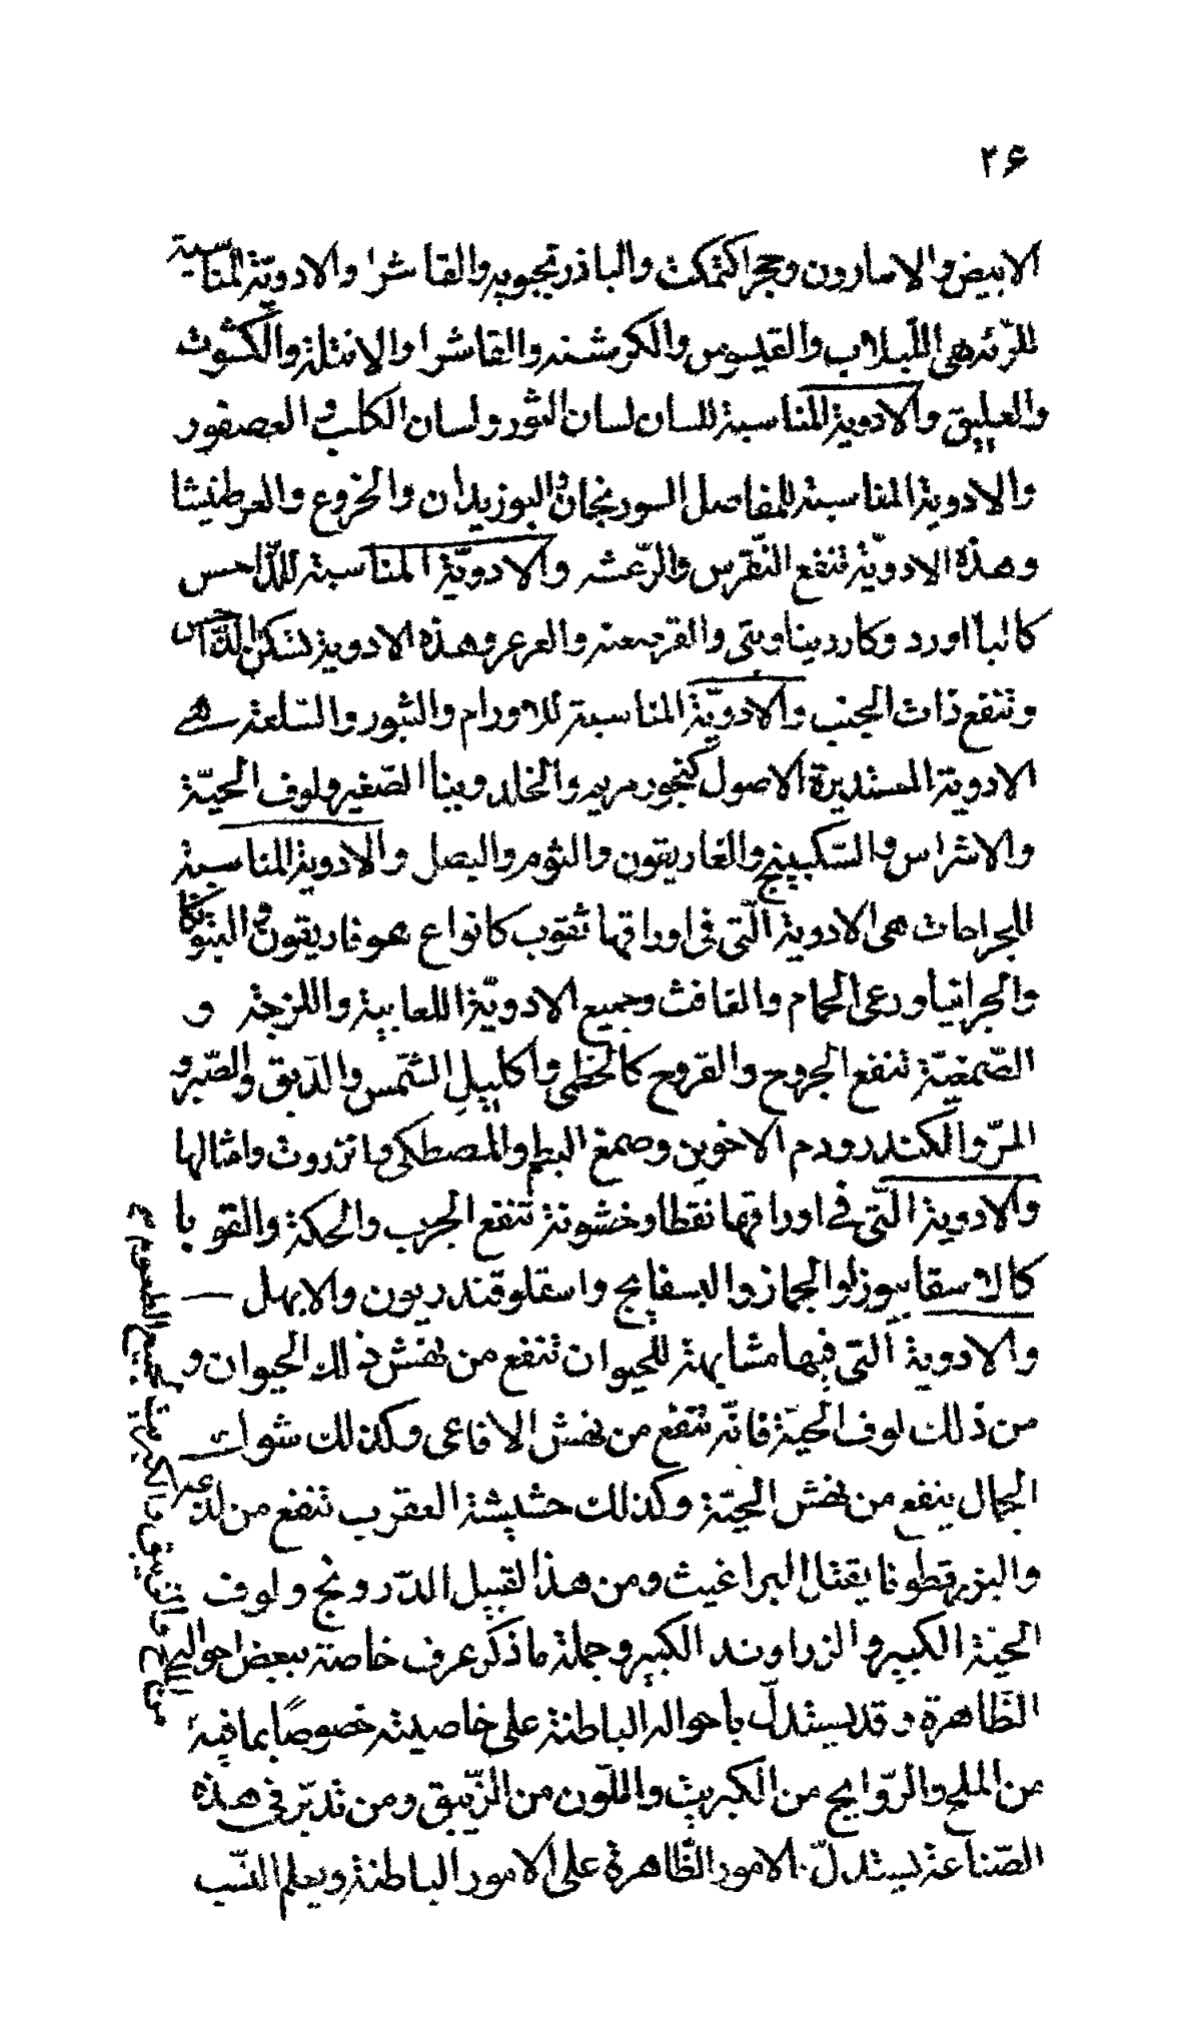 ۲۶
الابيض والاسارون وحجر اكتمكت والباذرنجبويه والقاشرا والادويّة المناسبة
للرّئة هى اللّبلاب والقيسوس والكرشنه والقاشرا والانتلة والكشوث
والعليق والادوية المناسبة للسان لسان الثور ولسان الكلب و العصفور
والادوية المناسبة للمفاصل السورنجان والبوزيدان والخروع والعرطنيثا
وهذه الادويّة تنفع النّقرس والرّعشه والادويّة المناسبة للدّاحس
كالبااورد وكارديناوبتى والقرصعنه والعرعر وهذه الادوية تسكن الدّاحس
وتنفع ذات الجنب والادويّة المناسبة للاورام والثبور والسّلعة هے
الادوية المستديرة الاصول كبخور مريم والخلد وبنا الصّغير ولوف الحيّة
والاشراس والسّكبينج والغاريقون والثوم والبصل والادوية المناسبة
للجراحات هى الادوية الّتى فى اوراقها ثقوب كانواع هوفاريقون و البنوكا
والجرانيا ورعى الحمام والغافث وجميع الادويّة اللعابية واللزجة و
الصّمغيّة تنفع الجروح والقروح كالخطمى واكليل الشّمس والدّبق والصّبر و
المرّ والكندر ودم الاخوين وصمغ البطم والمصطكى وانزروت وامثالها
والادوية الّتى فے اوراقها نقطا وخشونة تنفع الجرب والحكة والقوبا
كالاسقابيوزلو الجماز والبسفايج واسقلوقندريون والابهل
والادوية الّتى فيها مشابهة للحيوان تنفع من نهش ذلك الحيوان و
من ذلك لوف الحيّة فانّه تنفع من نهش الافاعى وكذلك شوات
الجمال ينفع من نهش الحيّة وكذلك حشيشة العقرب تنفع من لدغها
والبزرقطونا يقتل البراغيث ومن هذا القبيل الدّرونج ولوف
الحيّة الكبير والزراوند الكبير وجملة ما ذكر عرف خاصته ببعض احواله
الظّاهرة وقد يستدلّ باحواله الباطنة على خاصيته خصوصًا بما فيه
من الملح والرّوايح من الكبريت واللّون من الزّيبق ومن تدبّر فى هذه
الصّناعة يستدلّ بالامور الظّاهرة على الامور الباطنة ويعلم النّسب
من الملح والزيبق والكبريت جميع الطعوم ع